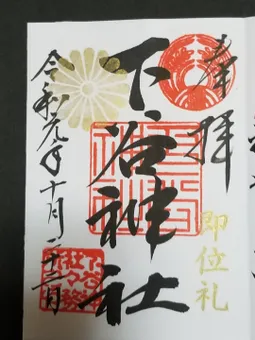 奉拝
即位礼
下谷神社
令和元年十月二十二日